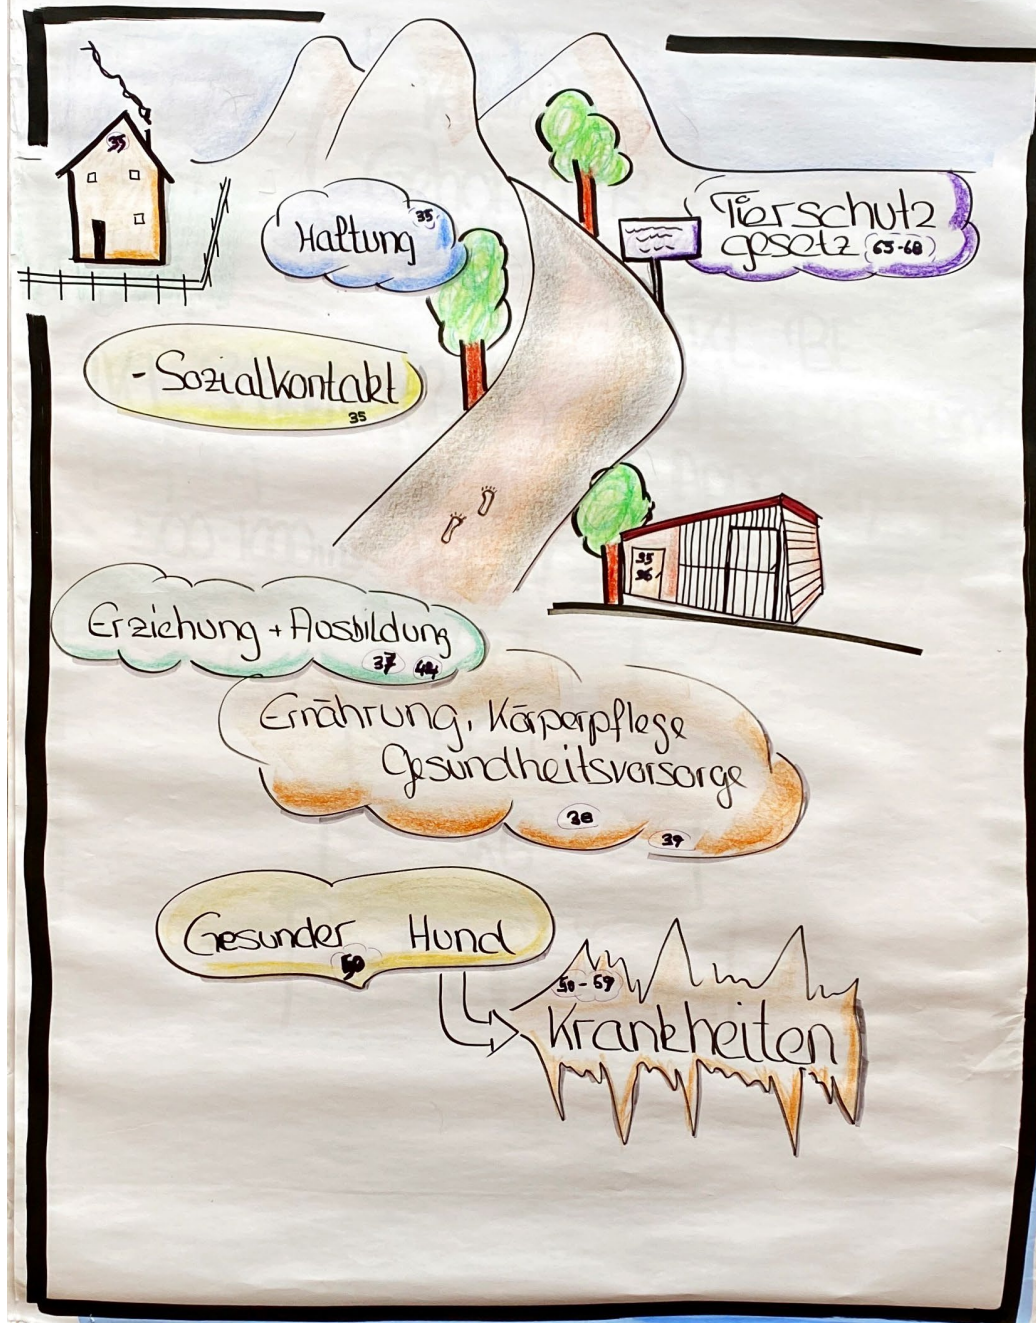 35
Haltung 35
Tierschutz
gesetz (65-68)
- Sozialkontakt
35
35
36
Erziehung + Ausbildung
37
Ernährung, Körperpflege
Gesundheitsvorsorge
38
39
Gesunder Hund
50
50-59
Krankheiten